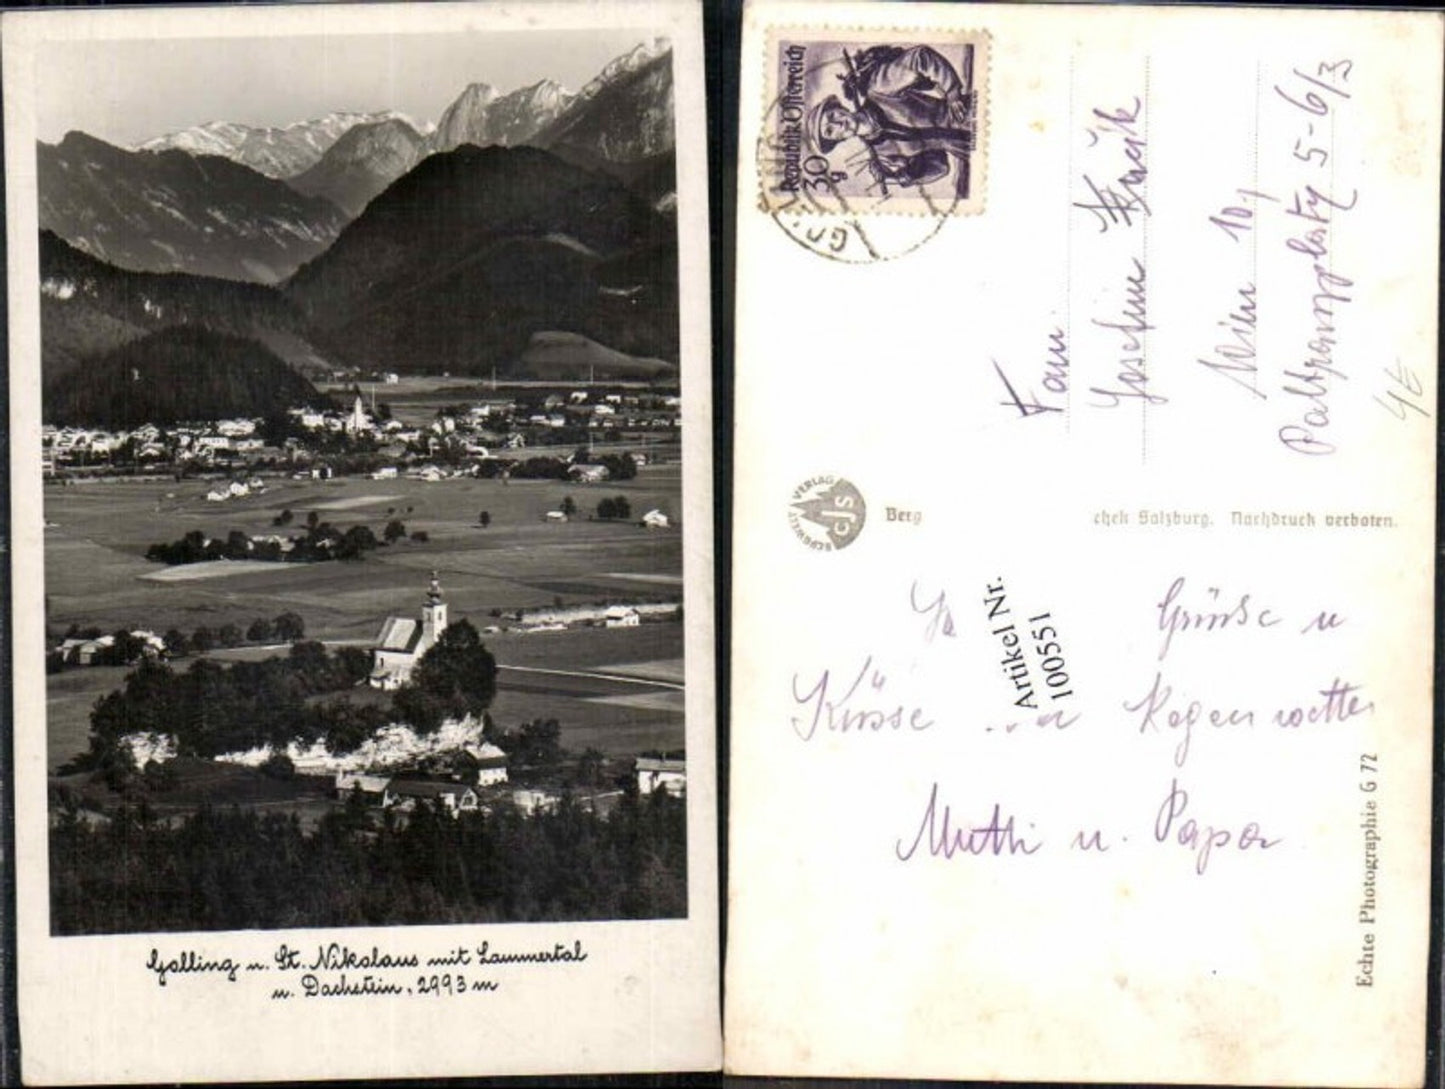 Golling u. St. Nikolaus mit Lammertal
u. Dachstein, 2993 m
Republik Österreich
30 g
GOLL
Fam.
Josefine
Wien 10.,
Paltramplatz 5-6/3
VERLAG
BERGWELT
CJS
Berg
chek Salzburg. Nachdruck verboten.
Artikel Nr.
100551
Grüsse u
Küsse Regenwetter
Mutti u. Papa
Echte Photographie G 72